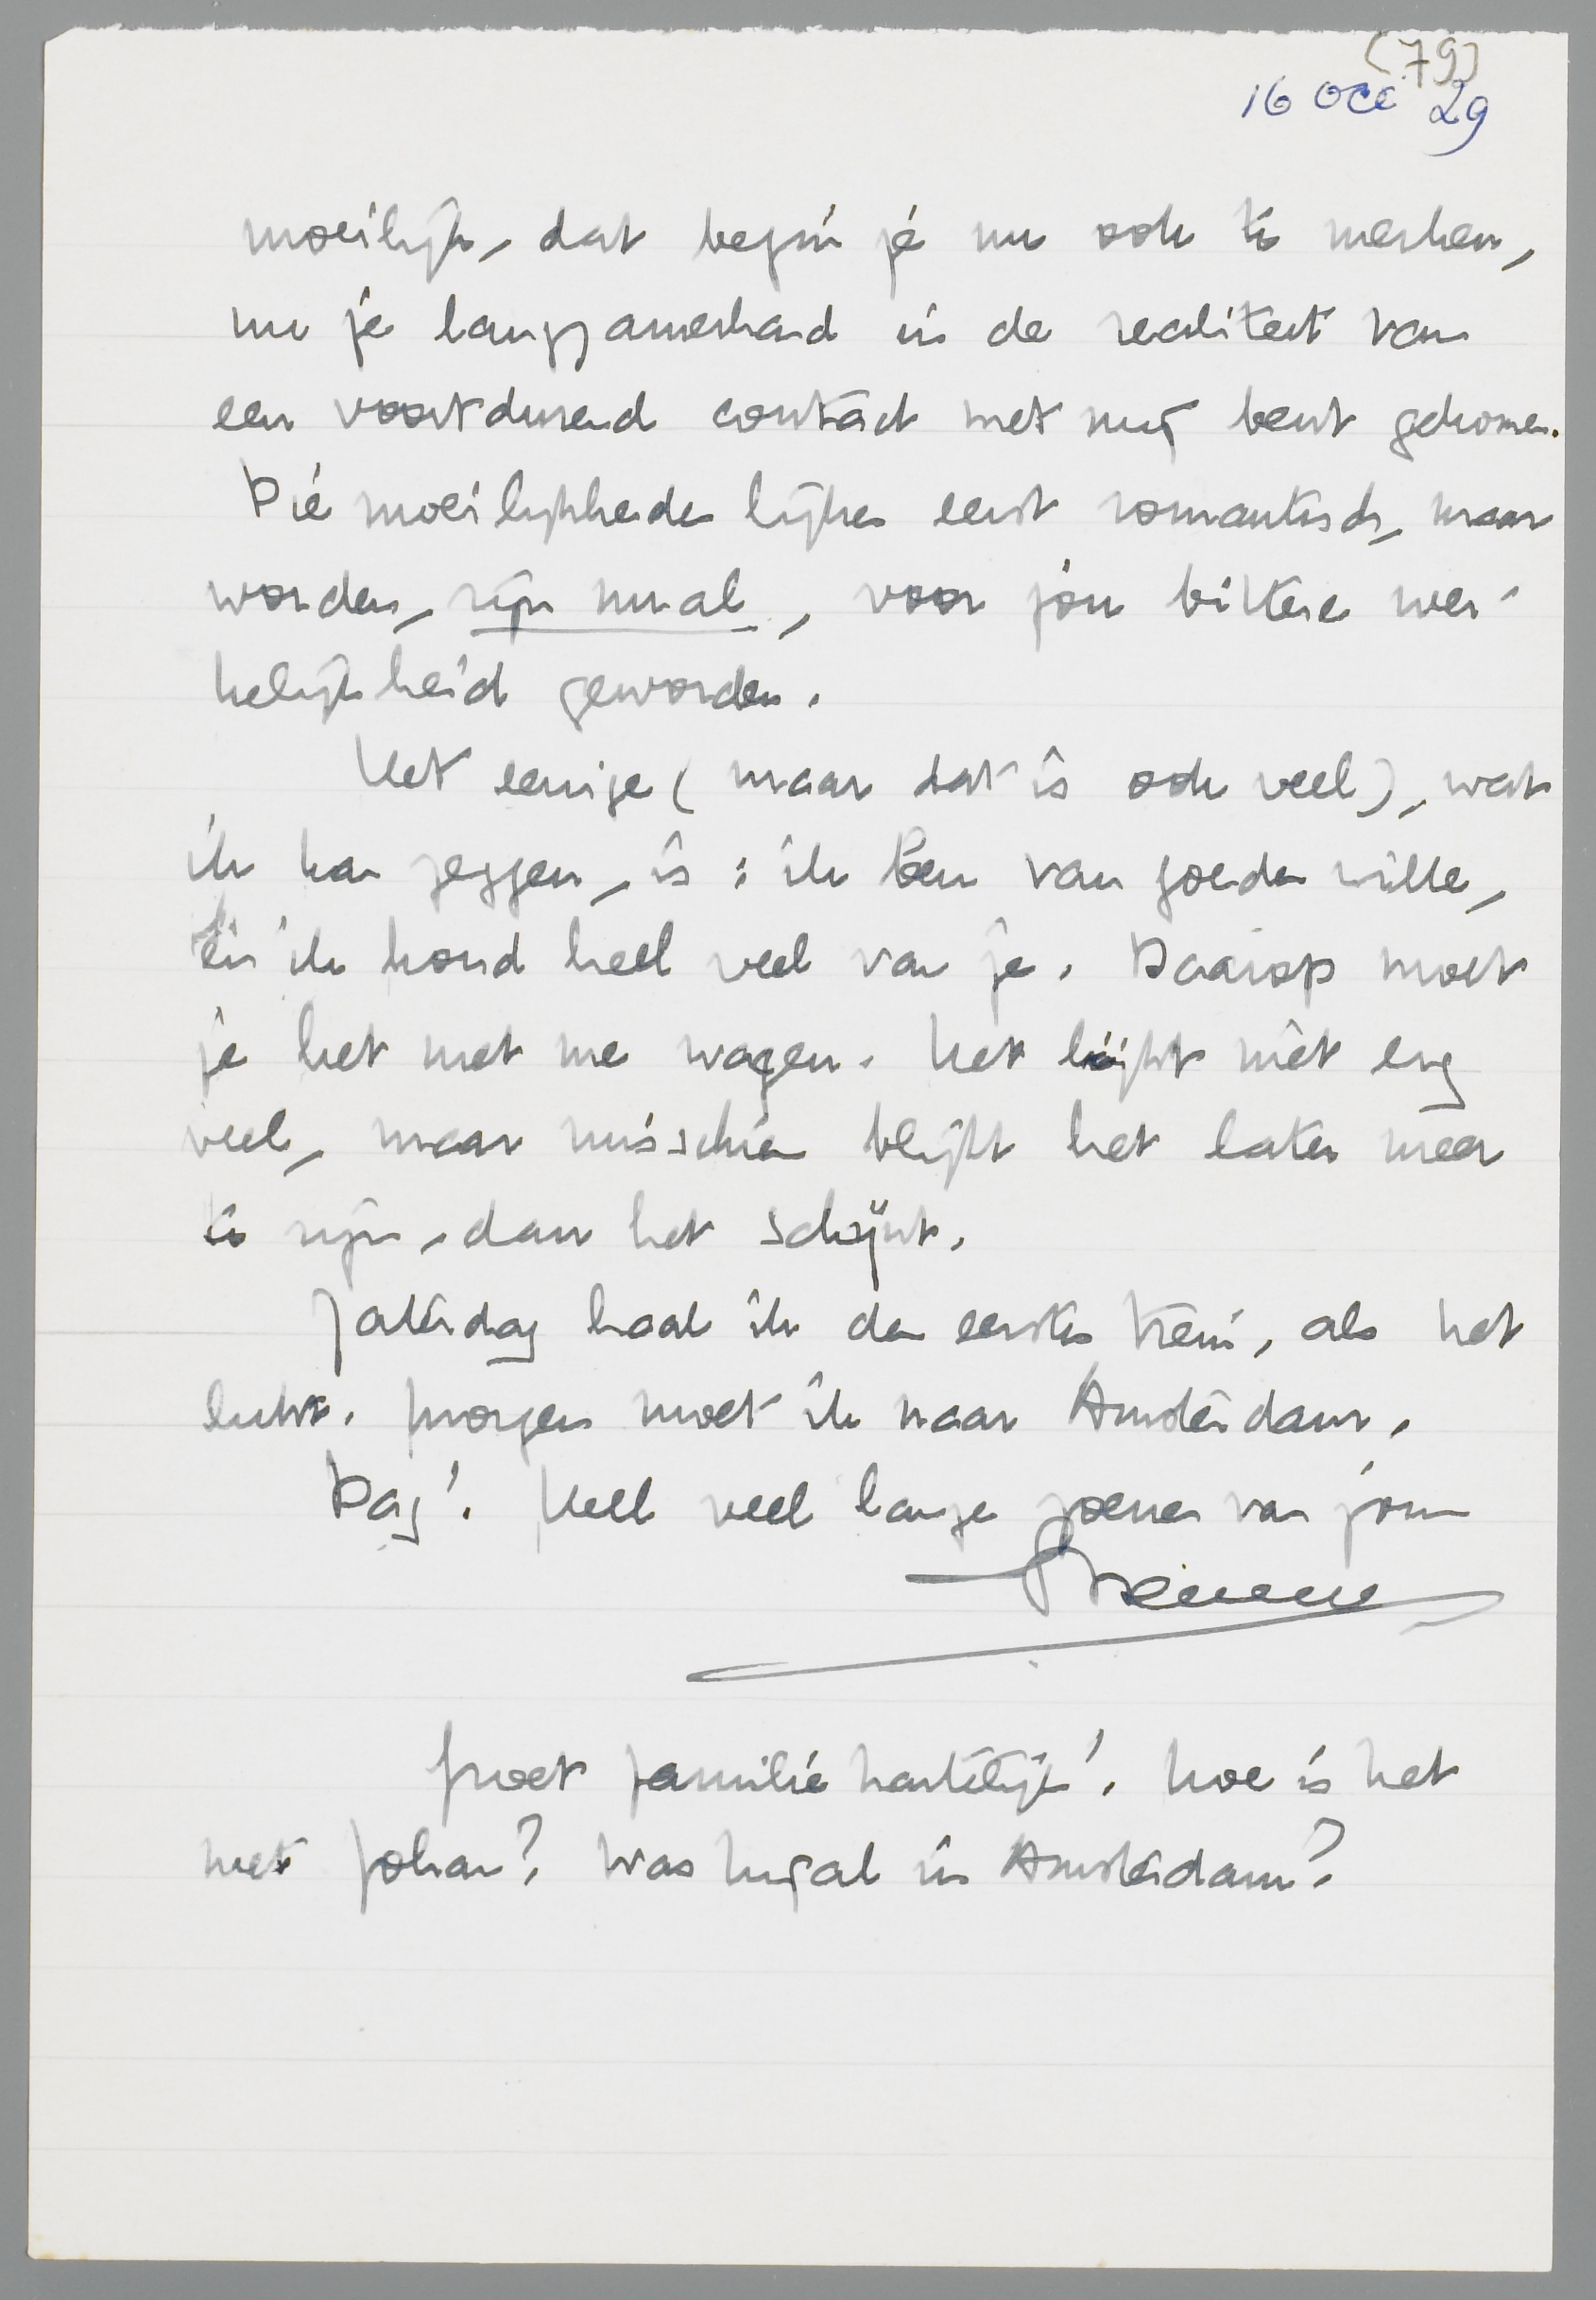 (79)
16 Oct 29
moeilijk, dat begin je nu ook te merken,
nu je langzamerhand in de realiteit van
een voortdurend contact met mij bent gekomen.
Die moeilijkheden lijken eerst romantisch, maar
worden, zijn nu al, voor jou bittere wer-
kelijkheid geworden.
Het eenige (maar dat is ook veel), wat
ik kan zeggen, is: ik ben van goeden wille,
én ik houd heel veel van je. Daarop moet
je het met me wagen. Het lijkt niet erg
veel, maar misschien blijkt het later meer
te zijn, dan het schijnt.
Zaterdag haal ik den eersten trein, als het
lukt. Morgen moet ik naar Amsterdam.
Dag! Heel veel lange zoenen van jouw
Menno
Groet familie hartelijk! Hoe is het
met Johan? Was hij al in Amsterdam?